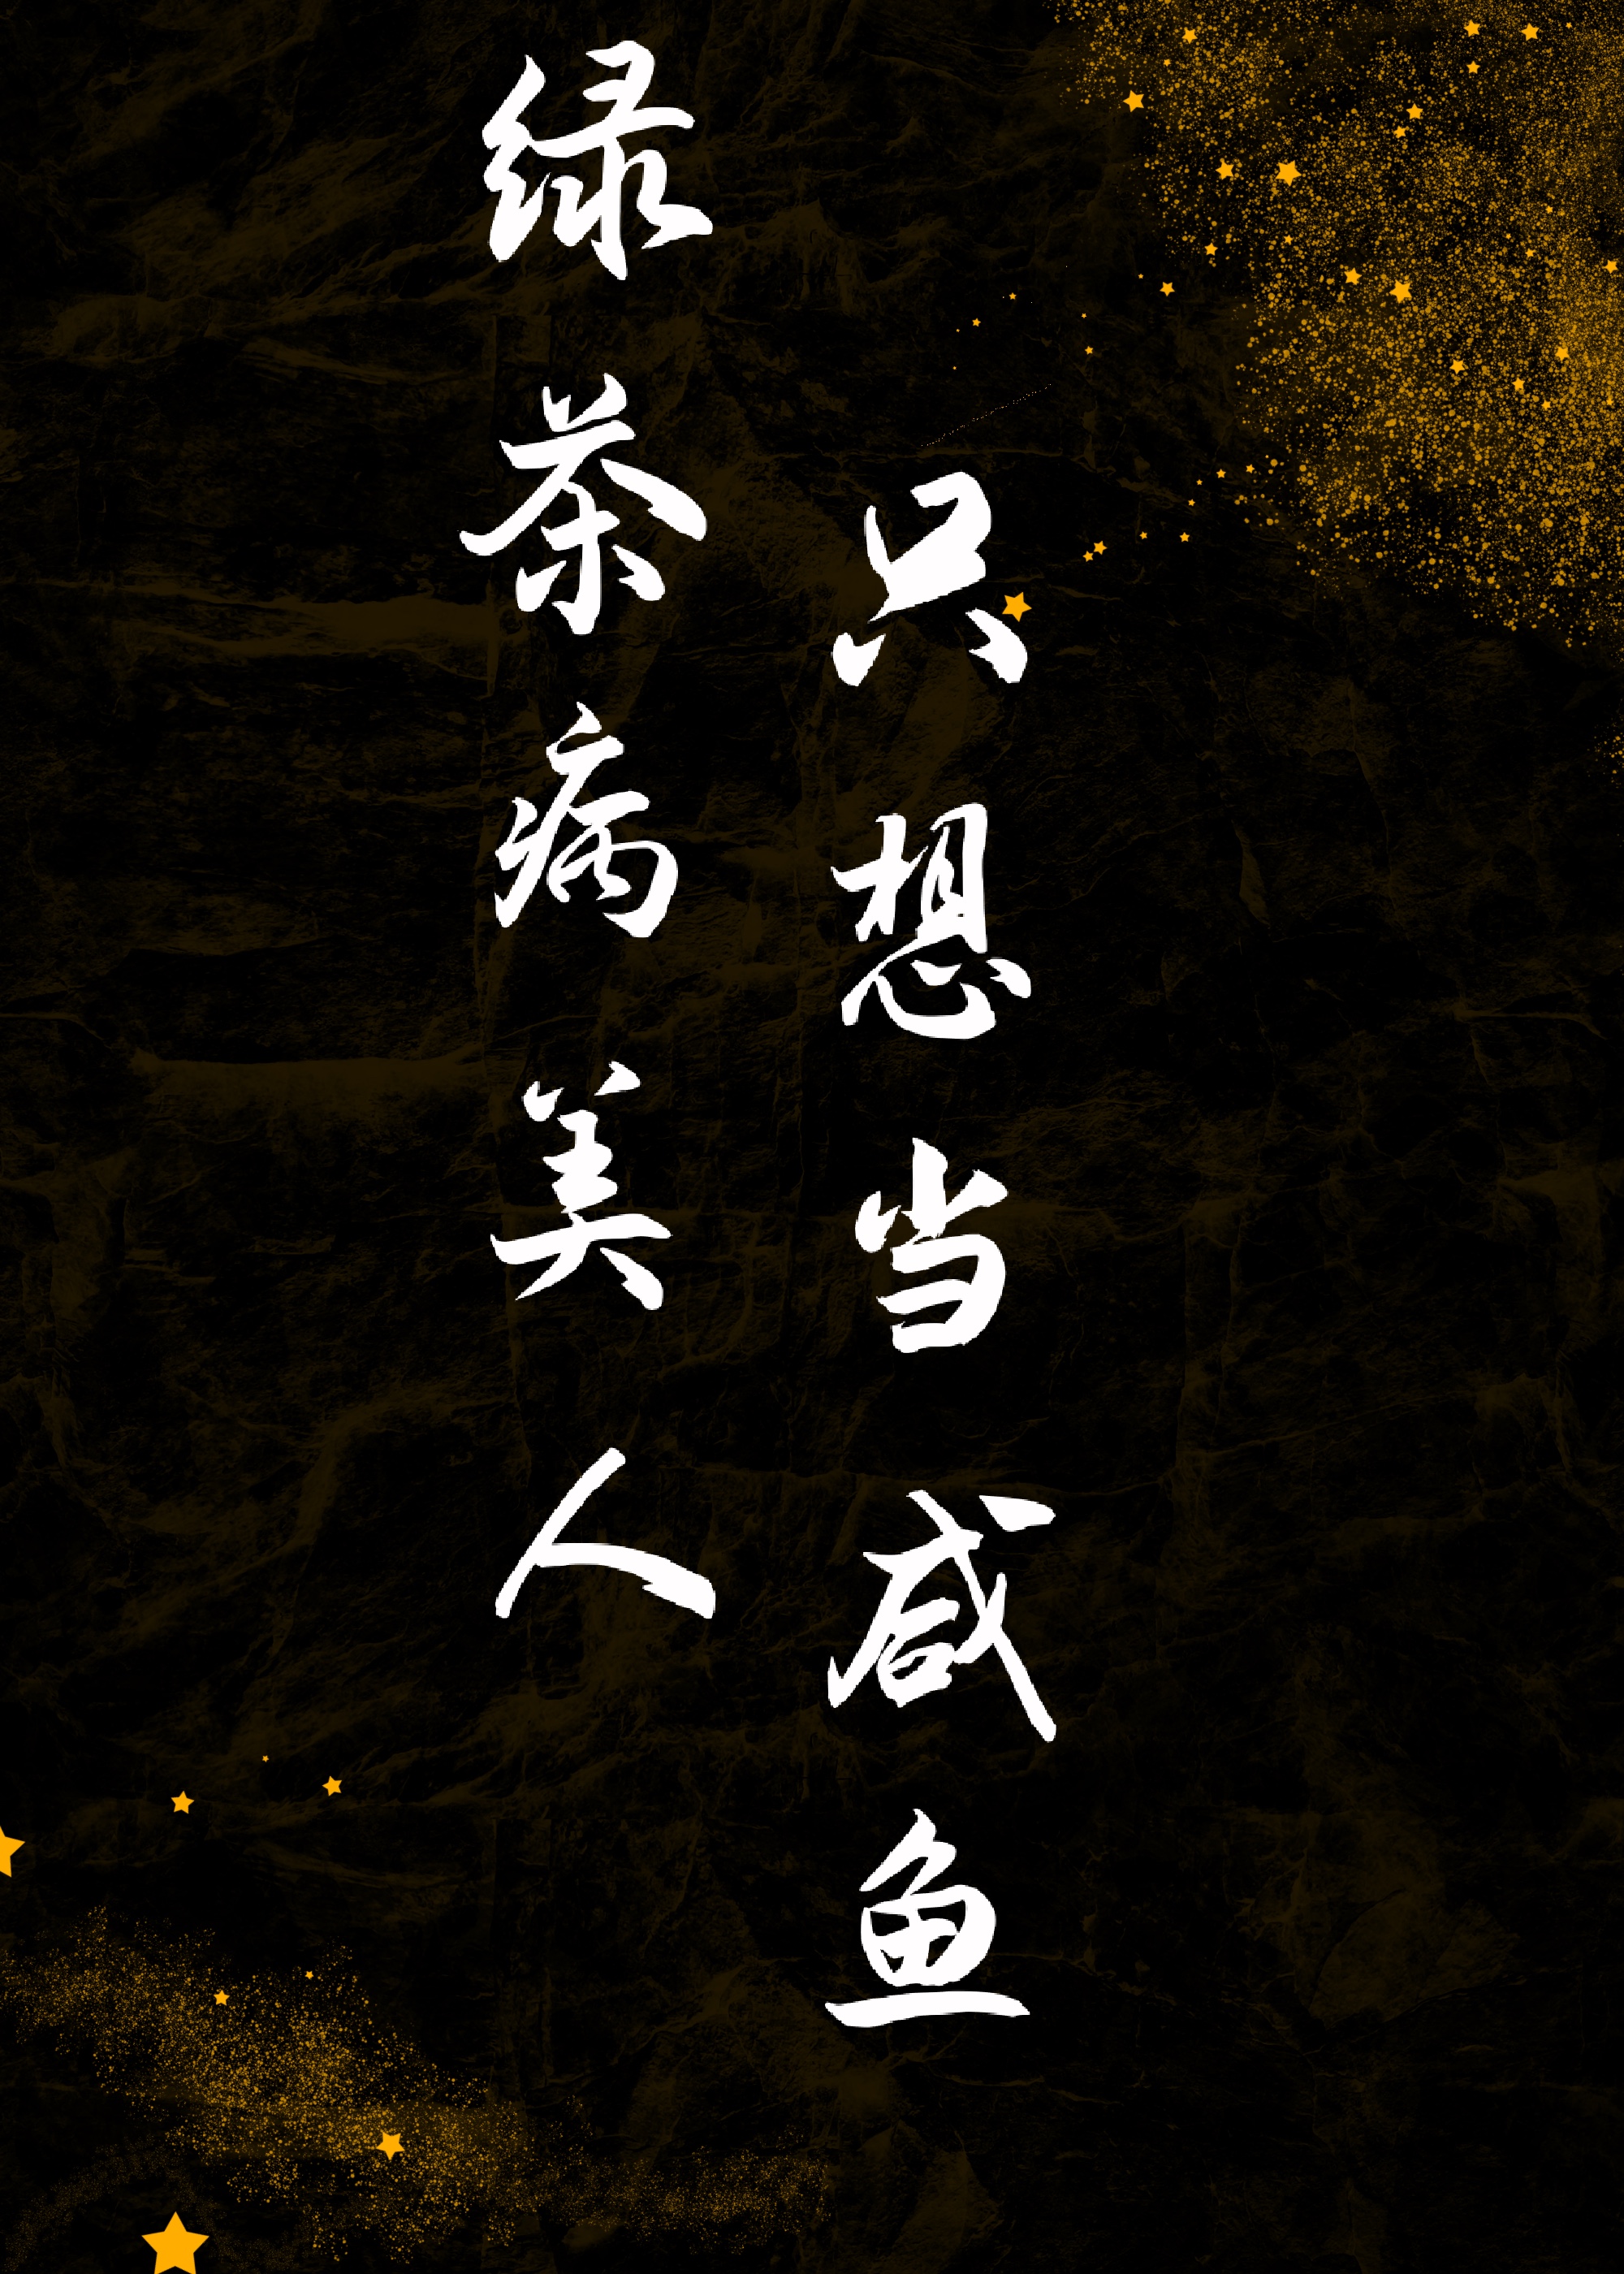 绿茶病美人
只想当咸鱼